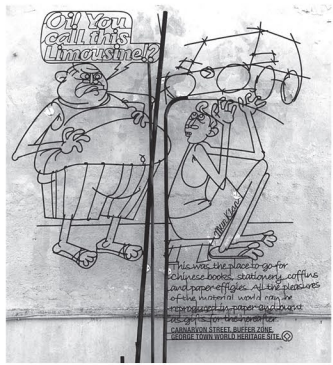 Oi! You
call this
Limousine!?
This was the place to go for
Chinese books, stationery, coffins
and paper effigies. All the pleasures
of the material world can be
reproduced in paper and burnt
as gifts for the hereafter.
CARNARVON STREET, BUFFER ZONE,
GEORGE TOWN WORLD HERITAGE SITE.